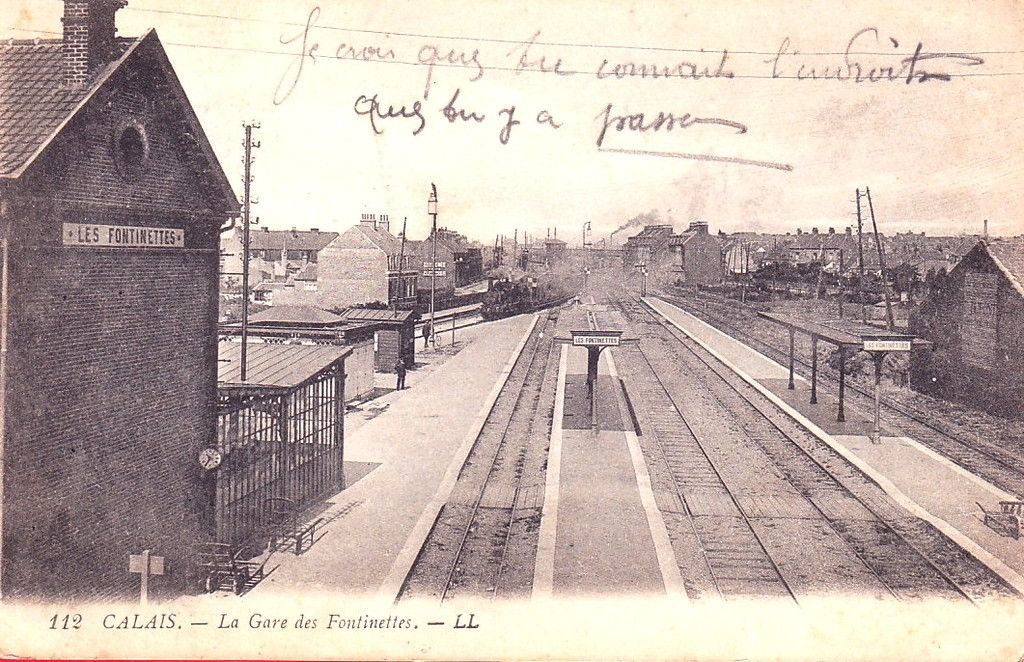 Je crois que tu connait l'endroit
que tu y a passer
LES FONTINETTES
LES FONTINETTES
LES FONTINETTES
112 CALAIS. — La Gare des Fontinettes. — LL